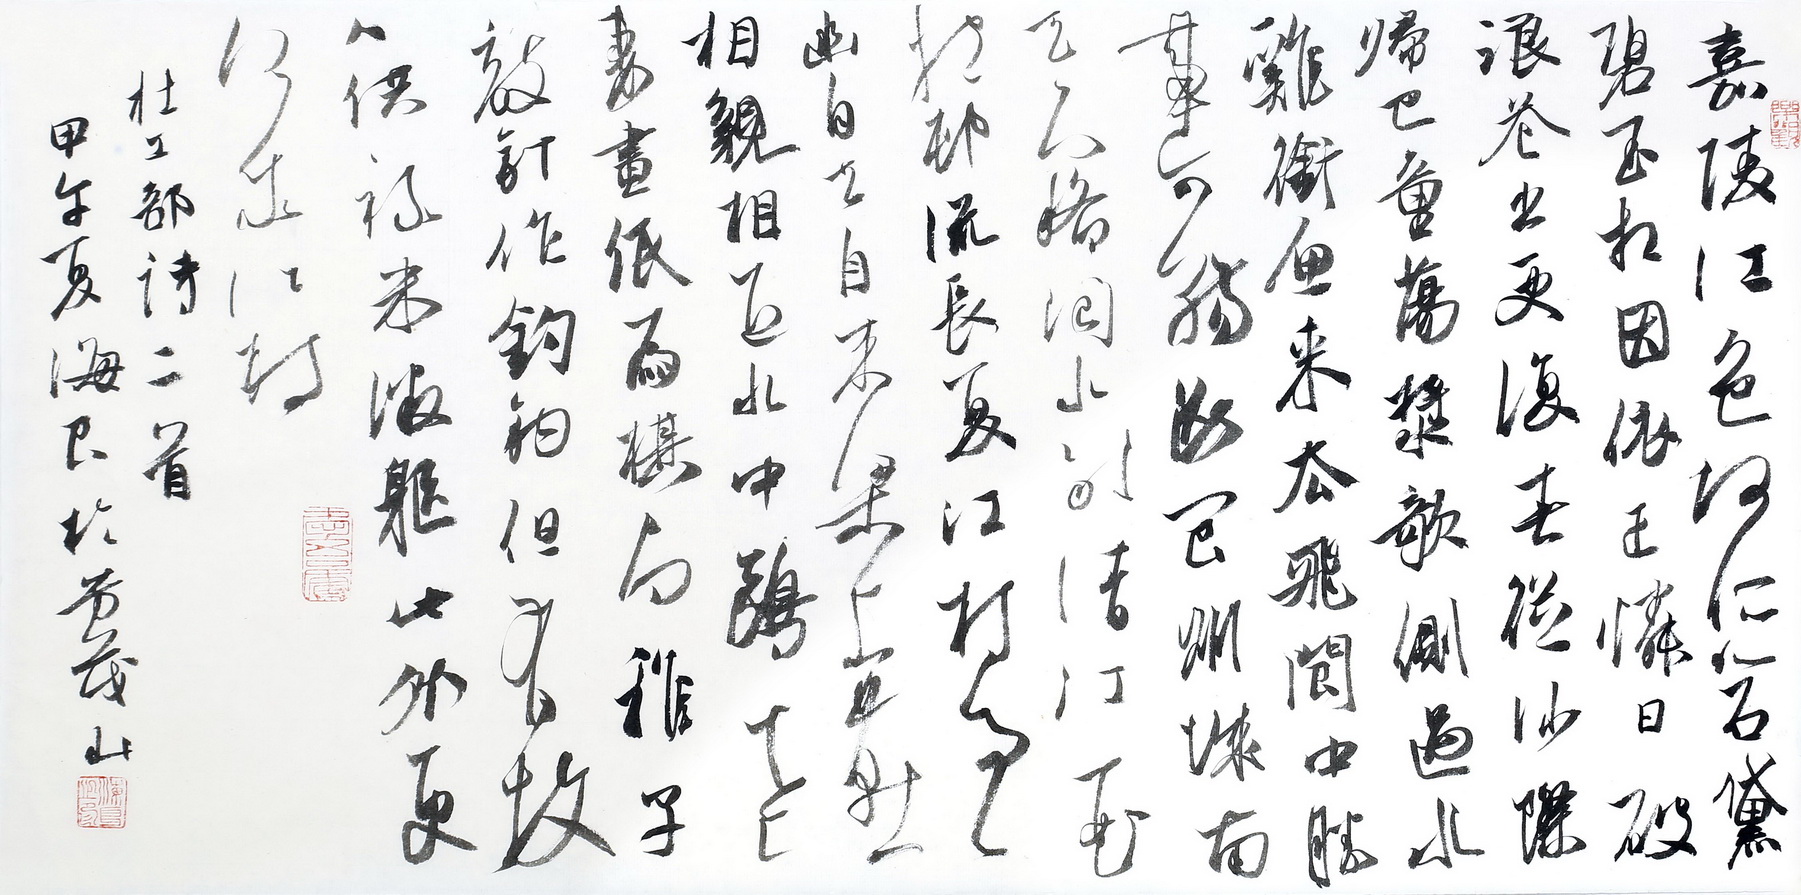 嘉陵江色何所似石黛
碧玉相因依正憐日破
浪花出更復春從沙際
歸巴童蕩槳欹側過水
雞銜魚來去飛閬中勝
事可腸斷閬州城南
天下稀閬水歌清江一曲
抱村流長夏江村事事
幽自去自來梁上燕
相親相近水中鷗老
妻畫紙為棋局稚子
敲針作釣鉤但有故
人供祿米微軀此外更
何求江村
杜工部詩二首
甲午夏海良於茂山